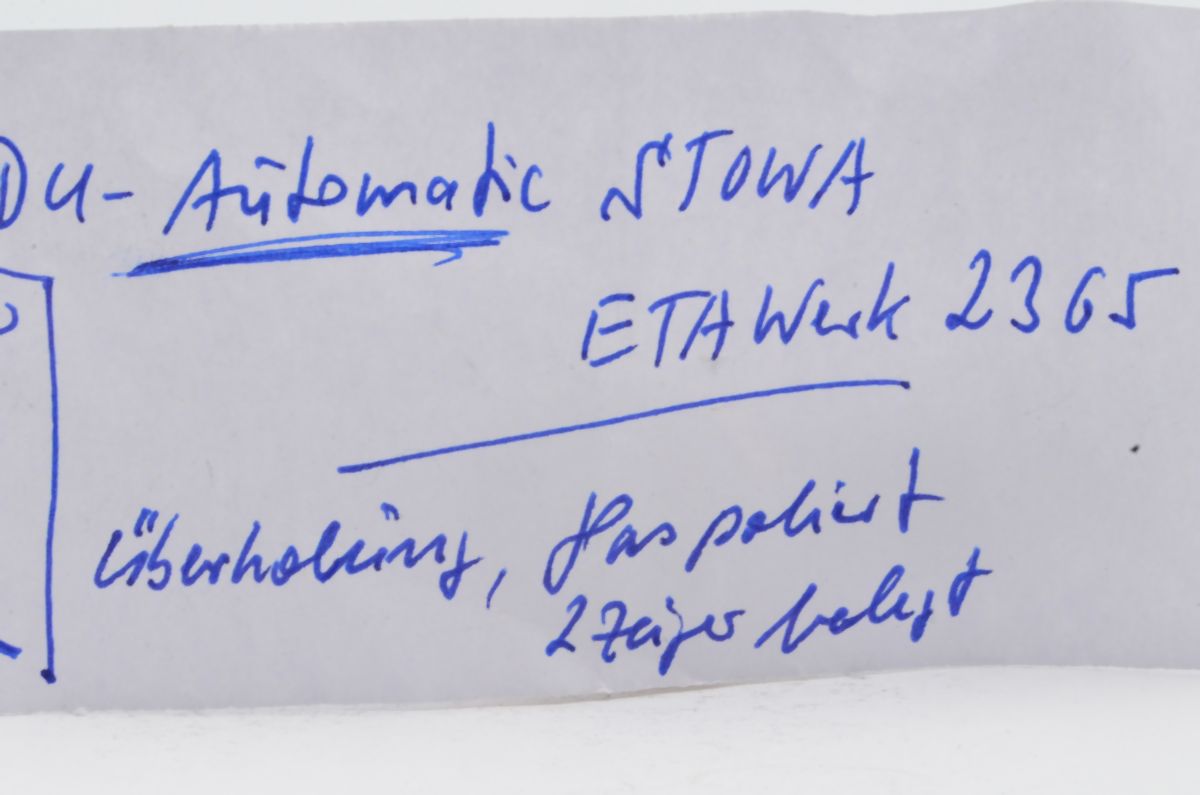 DU- Automatic STOWA
ETA Werk 2365
Überholung, Glas poliert
2 Zeiger belegt